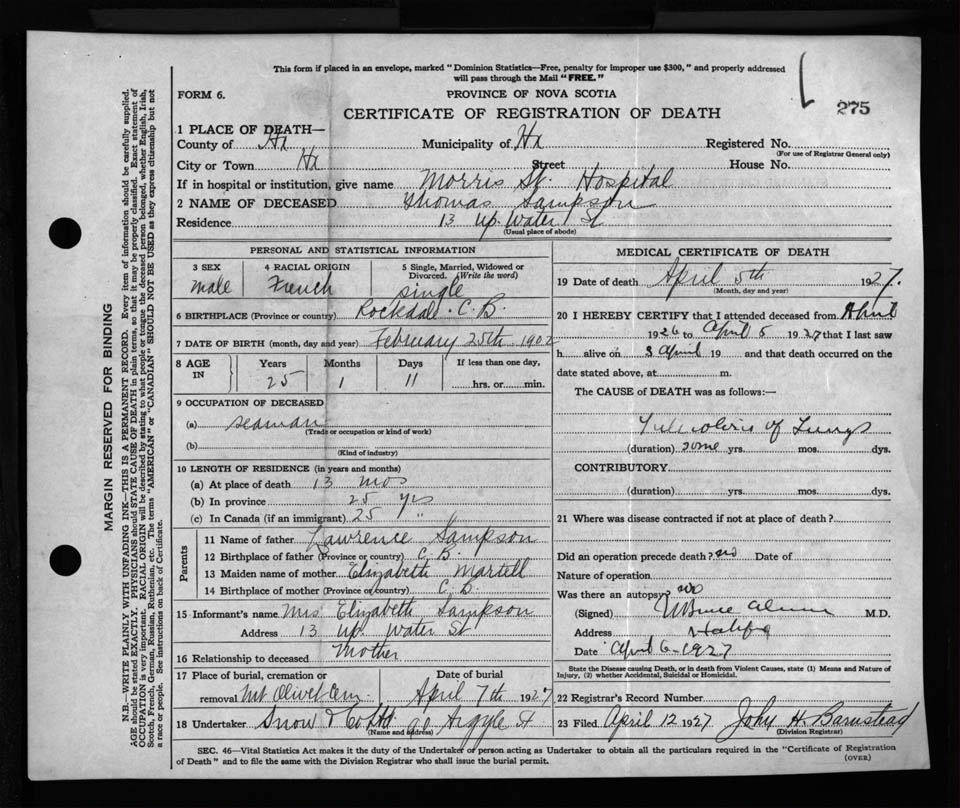 This form if placed in an envelope, marked "Dominion Statistics—Free, penalty for improper use $300," and properly addressed
will pass through the Mail "FREE."
FORM 6.
PROVINCE OF NOVA SCOTIA
275
CERTIFICATE OF REGISTRATION OF DEATH
1 PLACE OF DEATH—
County of Hx Municipality of Hx Registered No.
(For use of Registrar General only)
City or Town Hx Street House No.
If in hospital or institution, give name Morris St. Hospital
2 NAME OF DECEASED Thomas Sampson
Residence 13 Up. Water St
(Usual place of abode)
PERSONAL AND STATISTICAL INFORMATION
3 SEX 4 RACIAL ORIGIN 5 Single, Married, Widowed or
Divorced. (Write the word)
male French single
6 BIRTHPLACE (Province or country) Rockdale. C. B.
7 DATE OF BIRTH (month, day and year) February 25th 1902
8 AGE IN Years Months Days If less than one day,
25 1 11 hrs. or min.
9 OCCUPATION OF DECEASED
(a) seaman
(Trade or occupation or kind of work)
(b)
(Kind of industry)
10 LENGTH OF RESIDENCE (in years and months)
(a) At place of death 13 mos
(b) In province 25 yrs
(c) In Canada (if an immigrant) 25 "
Parents
11 Name of father Lawrence Sampson
12 Birthplace of father (Province or country) C. B.
13 Maiden name of mother Elizabeth Martell
14 Birthplace of mother (Province or country) C. B.
15 Informant's name Mrs Elizabeth Sampson
Address 13 Up. Water St
16 Relationship to deceased Mother
17 Place of burial, cremation or Date of burial
removal Mt Olivet Cem. April 7th 1927
18 Undertaker Snow & Co Ltd 90 Argyle St
(Name and address)
MEDICAL CERTIFICATE OF DEATH
19 Date of death April 5th 1927.
(Month, day and year)
20 I HEREBY CERTIFY that I attended deceased from April
1926 to April 5 1927 that I last saw
h alive on 3 April 19 and that death occurred on the
date stated above, at m.
The CAUSE of DEATH was as follows:—
of Lungs
(duration) some yrs. mos. dys.
CONTRIBUTORY
(duration) yrs. mos. dys.
21 Where was disease contracted if not at place of death?
Did an operation precede death? no Date of
Nature of operation
Was there an autopsy? no
(Signed) M.D.
Address Halifax
Date April 6-1927
State the Disease causing Death, or in death from Violent Causes, state (1) Means and Nature of
Injury, (2) whether Accidental, Suicidal or Homicidal.
22 Registrar's Record Number
23 Filed April 12 1927 John H. Barnstead
(Division Registrar)
SEC. 46—Vital Statistics Act makes it the duty of the Undertaker or person acting as Undertaker to obtain all the particulars required in the "Certificate of Registration
of Death" and to file the same with the Division Registrar who shall issue the burial permit.
(OVER)
MARGIN RESERVED FOR BINDING
N.B.—WRITE PLAINLY WITH UNFADING INK—THIS IS A PERMANENT RECORD. Every item of information should be carefully supplied.
AGE should be stated EXACTLY. PHYSICIANS should STATE CAUSE OF DEATH in plain terms, so that it may be properly classified. Exact statement of
OCCUPATION is very important. RACIAL ORIGIN will be described by stating to what people or tongue the deceased person belonged, whether English, Irish,
Scotch, French, German, Russian, Ruthenian, etc. The terms "AMERICAN" or "CANADIAN" SHOULD NOT BE USED as they express citizenship but not
a race or people. See instructions on back of Certificate.